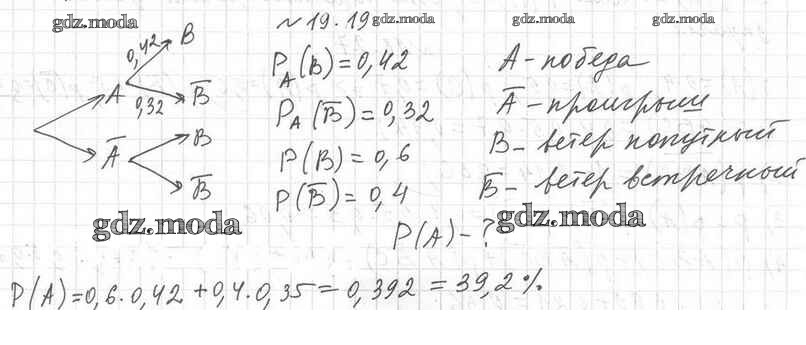 № 19.19
gdz.moda
gdz.moda
gdz.moda
0,42
B
A
0,32
B̅
A̅
B
B̅
P_A(B)=0,42
P_A(B̅)=0,32
P(B)=0,6
P(B̅)=0,4
A - победа
A̅ - проигрыш
B - ветер попутный
B̅ - ветер встречный
gdz.moda
gdz.moda
P(A) - ?
P(A)=0,6·0,42+0,4·0,35=0,392=39,2%